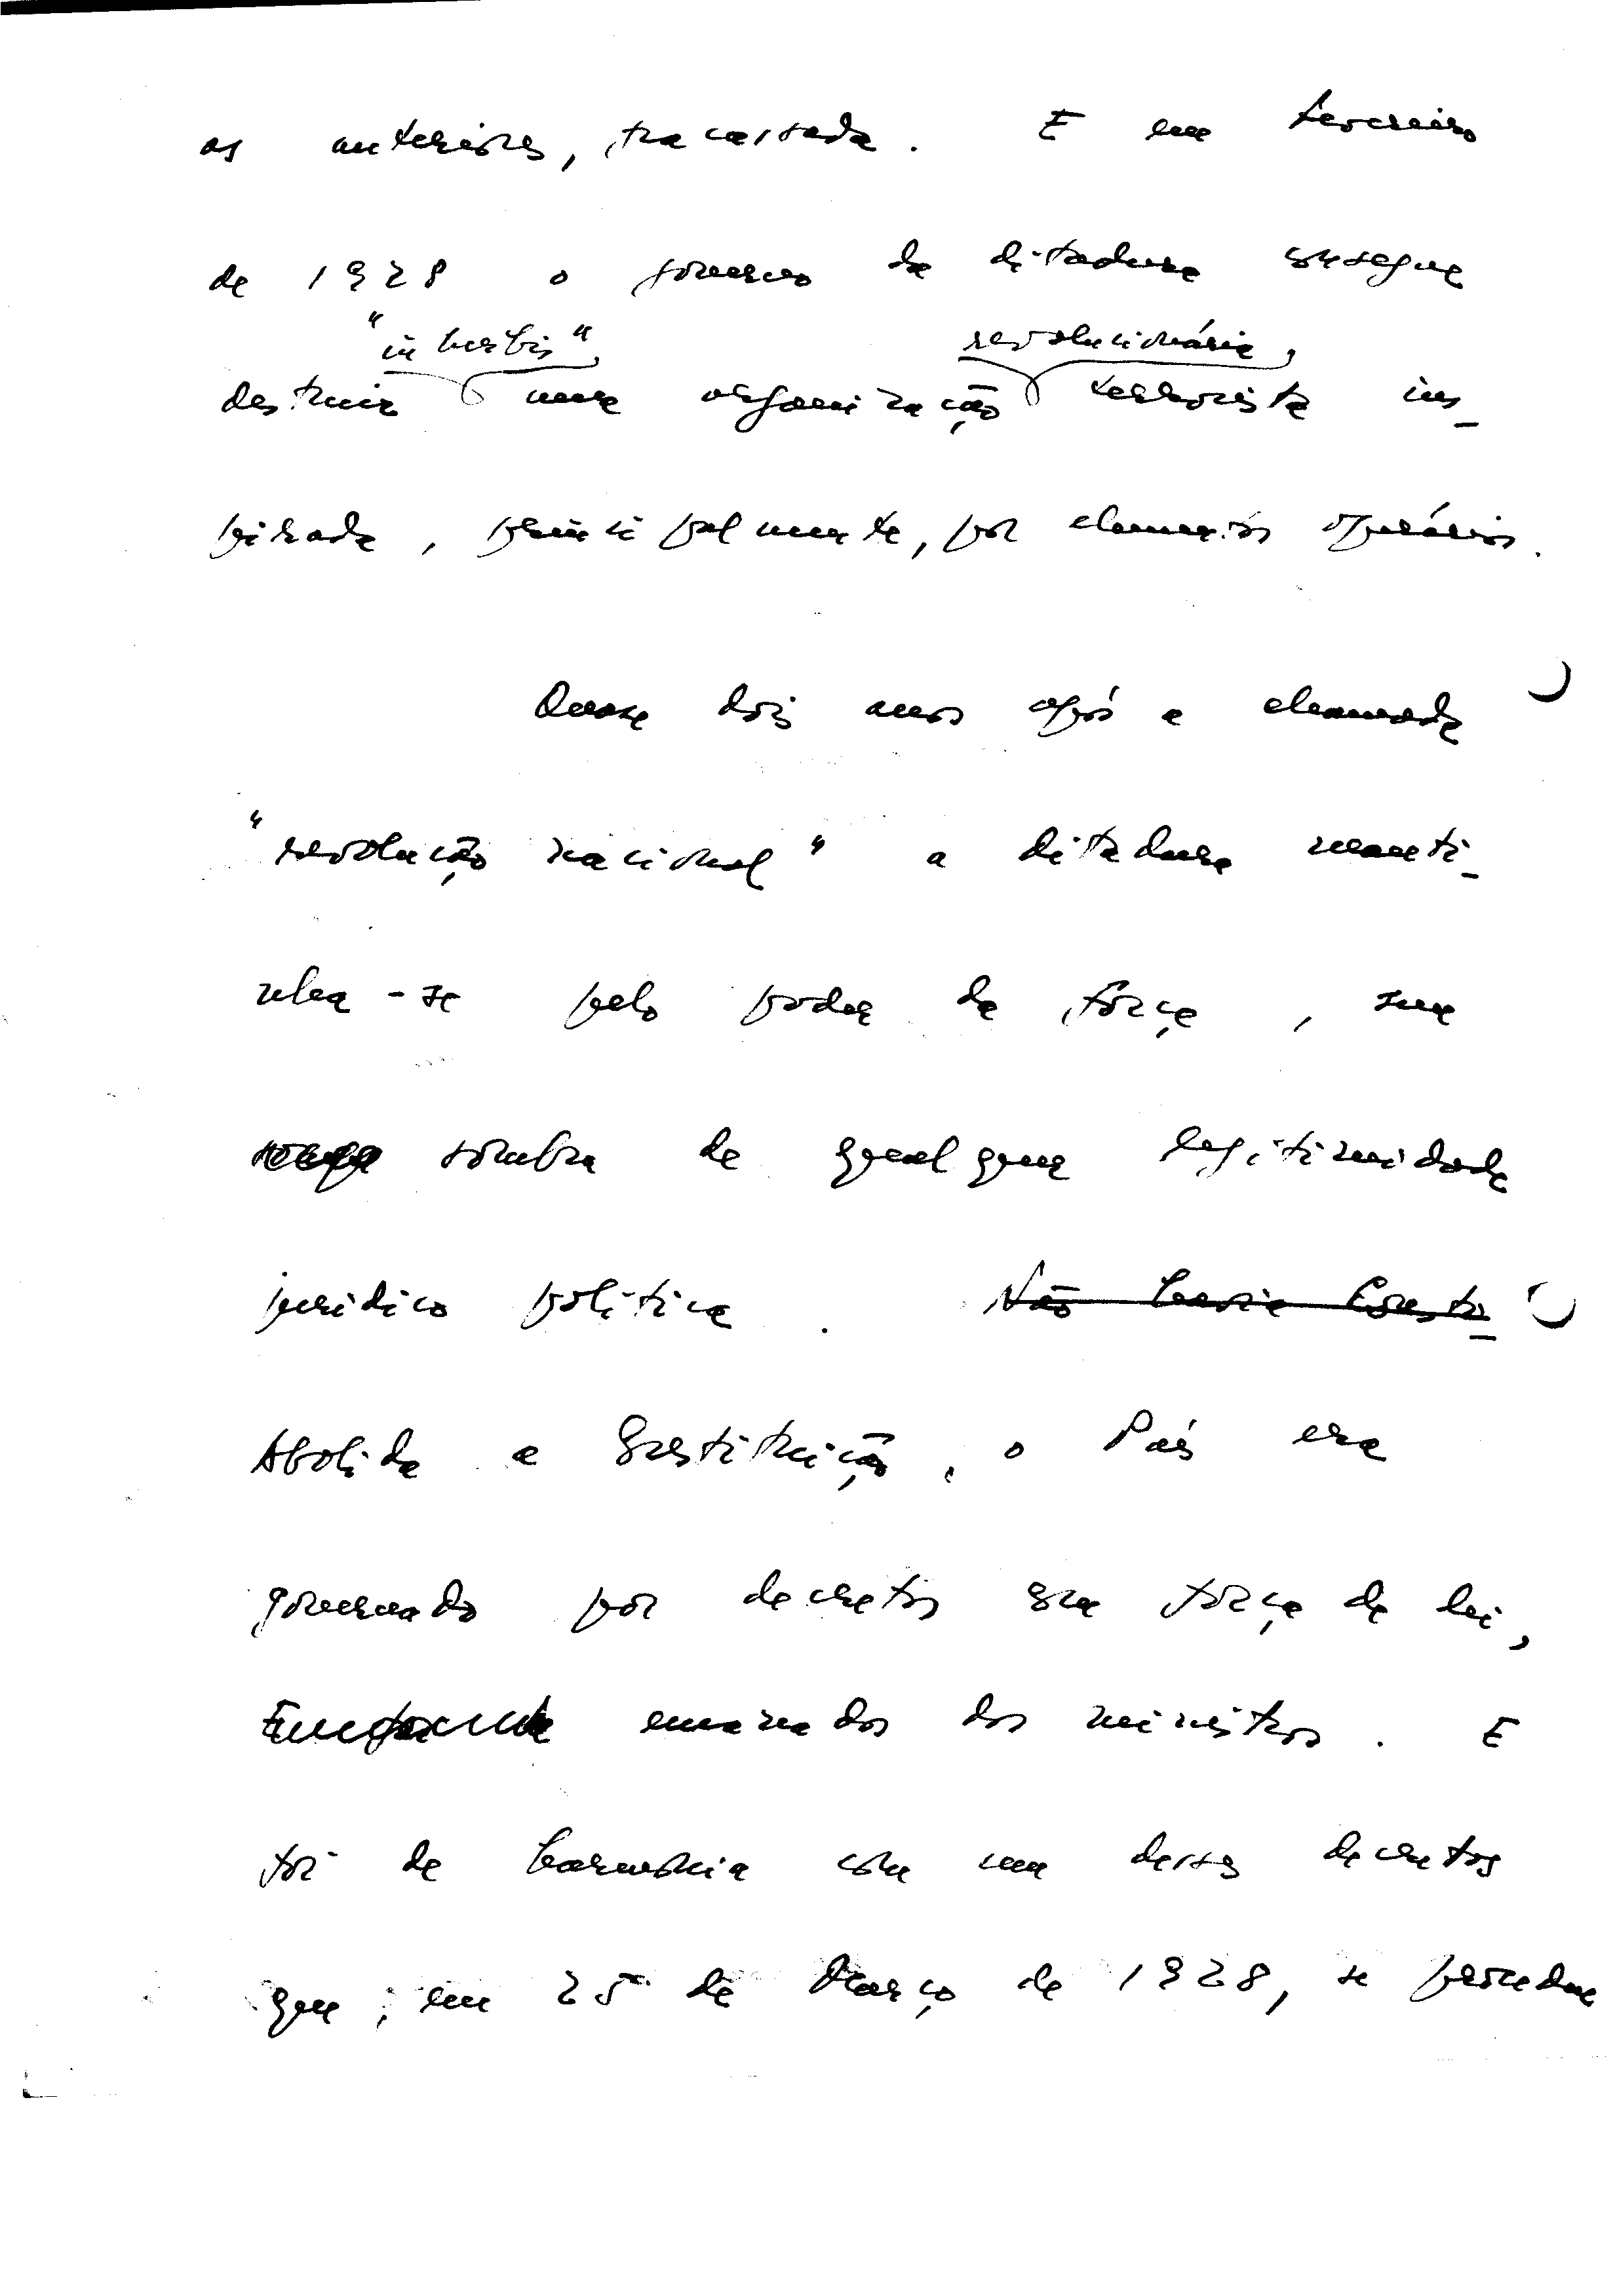 as anteriores, fracassada. E em Fevereiro
de 1928 o governo da ditadura consegue
"in herbis", revolucionária,
destruir uma organização terrorista ins_
pirada, principalmente, por elementos operários.
Quase dois anos após a chamada
"revolução nacional" a ditadura manti_
nha-se pelo poder da força, sem
sombra de qualquer legitimidade
juridico politica. Não havia Consti_
Abolida a Constituição, o País era
governado por decretos com força de lei,
emanados dos ministros. E
foi de harmonia com um desses decretos
que, em 25 de Março de 1928, se procedeu